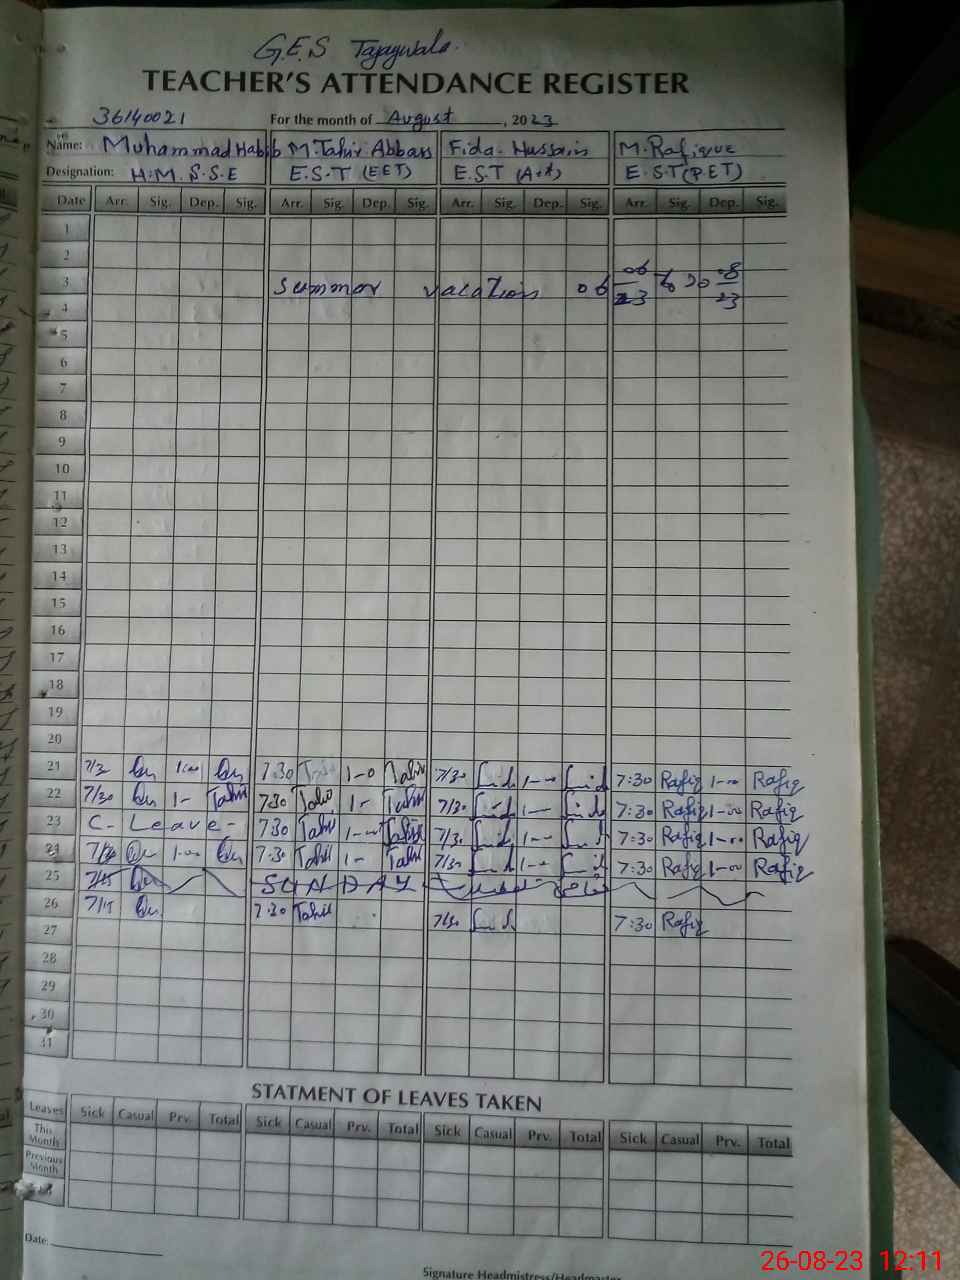 G.E.S Tajaywala.
TEACHER'S ATTENDANCE REGISTER
36140021 For the month of August, 2023
Name: Muhammad Habib M. Tahir Abbars Fida. Hussain M. Rafique
Designation: H.M. S.S.E E.S.T (EET) E.S.T E.S.T (P.ET)
Date Arr. Sig. Dep. Sig. Arr. Sig. Dep. Sig. Arr. Sig. Dep. Sig. Arr. Sig. Dep. Sig.
1
2
3 Summar vacation 06 06/23 to 20 08/23
4
5
6
7
8
9
10
11
12
13
14
15
16
17
18
19
20
21 7/3 1-00 7:30 1-0 7/30 1-00 7:30 Rafiq 1-00 Rafiq
22 7/30 1- Tahir 7:30 Tahir 1- Tahir 7/30 1- 7:30 Rafiq 1-00 Rafiq
23 C- Leave- 7:30 Tahir 1-00 Tahir 7/30 1-00 7:30 Rafiq 1-00 Rafiq
24 1-00 7:30 Tahir 1- Tahir 7/30 1-00 7:30 Rafiq 1-00 Rafiq
25 SUNDAY
26 7/15 7:30 Tahir 7/30 7:30 Rafiq
27
28
29
30
31
STATMENT OF LEAVES TAKEN
Leaves Sick Casual Prv. Total Sick Casual Prv. Total Sick Casual Prv. Total Sick Casual Prv. Total
This Month
Previous Month
Date:
Signature Headmistress/Headmaster
26-08-23 12:11